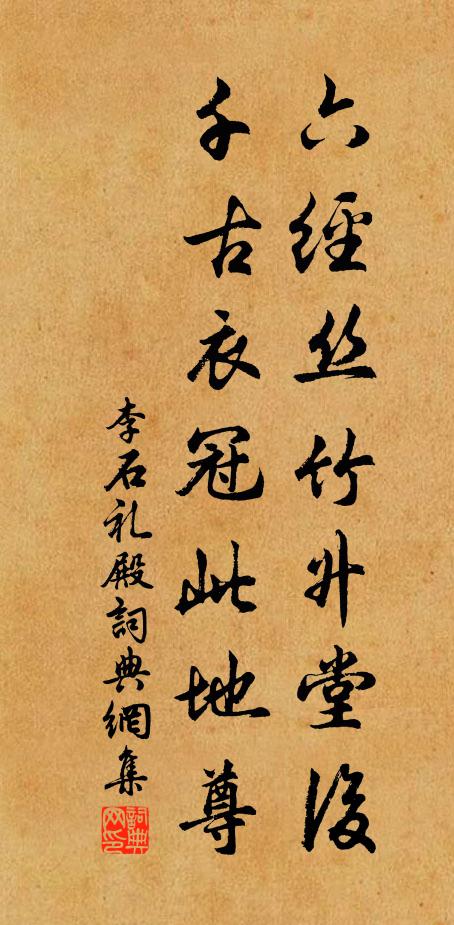 六經丝竹升堂後
千古衣冠此地尊
李石礼殿詞典網集
詞典网印